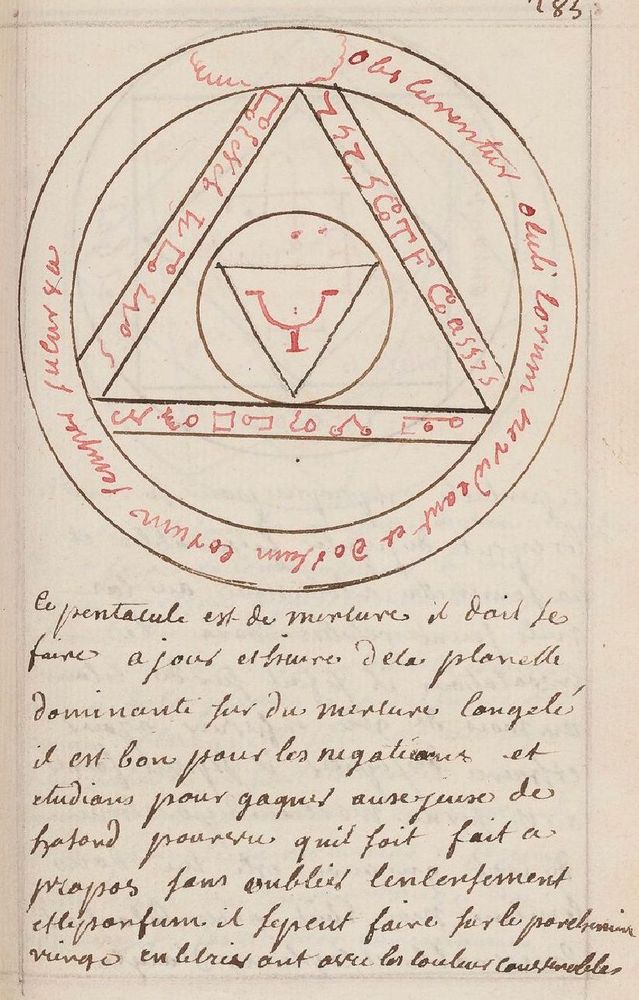 185
obscurentur oculi eorum ne videant et dorsum eorum semper incurva
ce pentacule est de mercure il doit se
faire a jour et heure dela planette
dominante sur du mercure congelé
il est bon pour les negotians et
etudians pour gagner aux jeux de
hasard pourvu quil soit fait a
propos sans oublier lencensement
et le parfum il se peut faire sur le parchemin
vierge en lecrivant avec les couleurs convenables